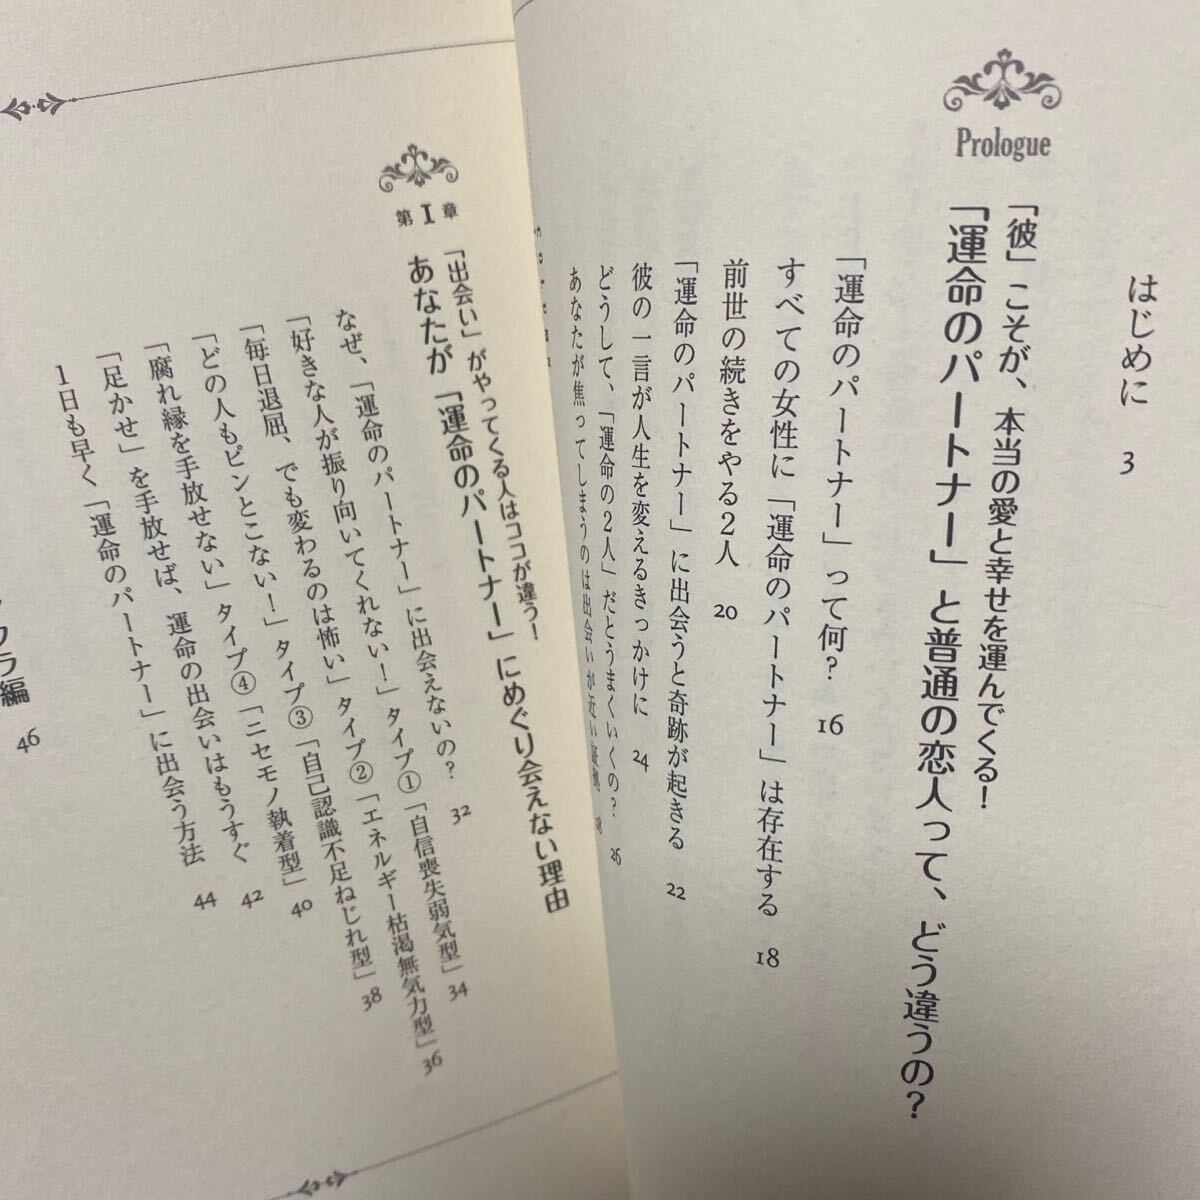 はじめに 3
Prologue
「彼」こそが、本当の愛と幸せを運んでくる!
「運命のパートナー」と普通の恋人って、どう違うの?
「運命のパートナー」って何? 16
すべての女性に「運命のパートナー」は存在する 18
前世の続きをやる2人 20
「運命のパートナー」に出会うと奇跡が起きる 22
彼の一言が人生を変えるきっかけに 24
どうして、「運命の2人」だとうまくいくの? 26
あなたが焦ってしまうのは出会いが近い証拠 28
第1章
「出会い」がやってくる人はココが違う!
あなたが「運命のパートナー」にめぐり会えない理由
なぜ、「運命のパートナー」に出会えないの? 32
「好きな人が振り向いてくれない!」タイプ①「自信喪失弱気型」 34
「毎日退屈、でも変わるのは怖い」タイプ②「エネルギー枯渇無気力型」 36
「どの人もピンとこない!」タイプ③「自己認識不足ねじれ型」 38
「腐れ縁を手放せない」タイプ④「ニセモノ執着型」 40
「足かせ」を手放せば、運命の出会いはもうすぐ 42
1日も早く「運命のパートナー」に出会う方法 44
編 46